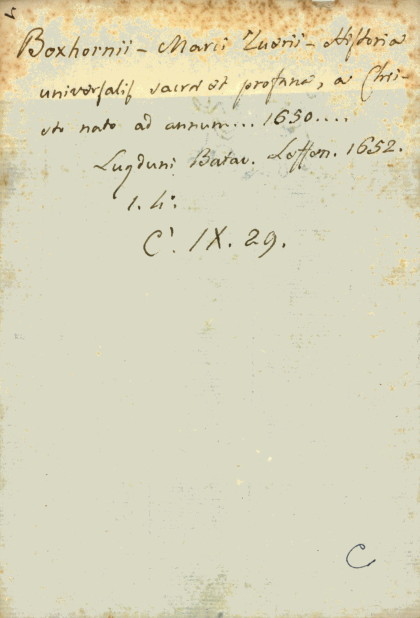 Boxhornii - Marci Zuerii - Historia
universalis sacra et profana, a Chri-
sto nato ad annum... 1650....
Lugduni Batav. Leffen. 1652.
1. 4°.
C'. IX. 29.
C